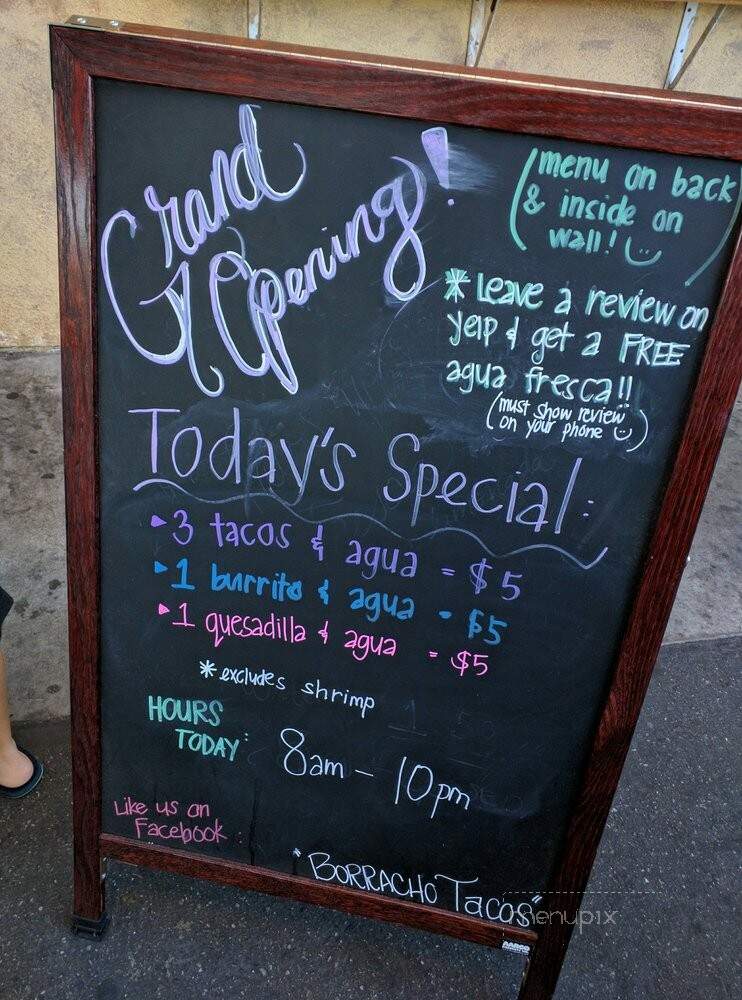 Grand
Opening!
(menu on back
& inside on
wall! :)
* Leave a review on
yelp & get a FREE
agua fresca!!
(must show review
on your phone :))
Today's Special:
▸3 tacos & agua = $5
▸1 burrito & agua = $5
▸1 quesadilla & agua = $5
*excludes shrimp
HOURS
TODAY:
8am - 10pm
Like us on
Facebook:
"BORRACHO Tacos"
menupix